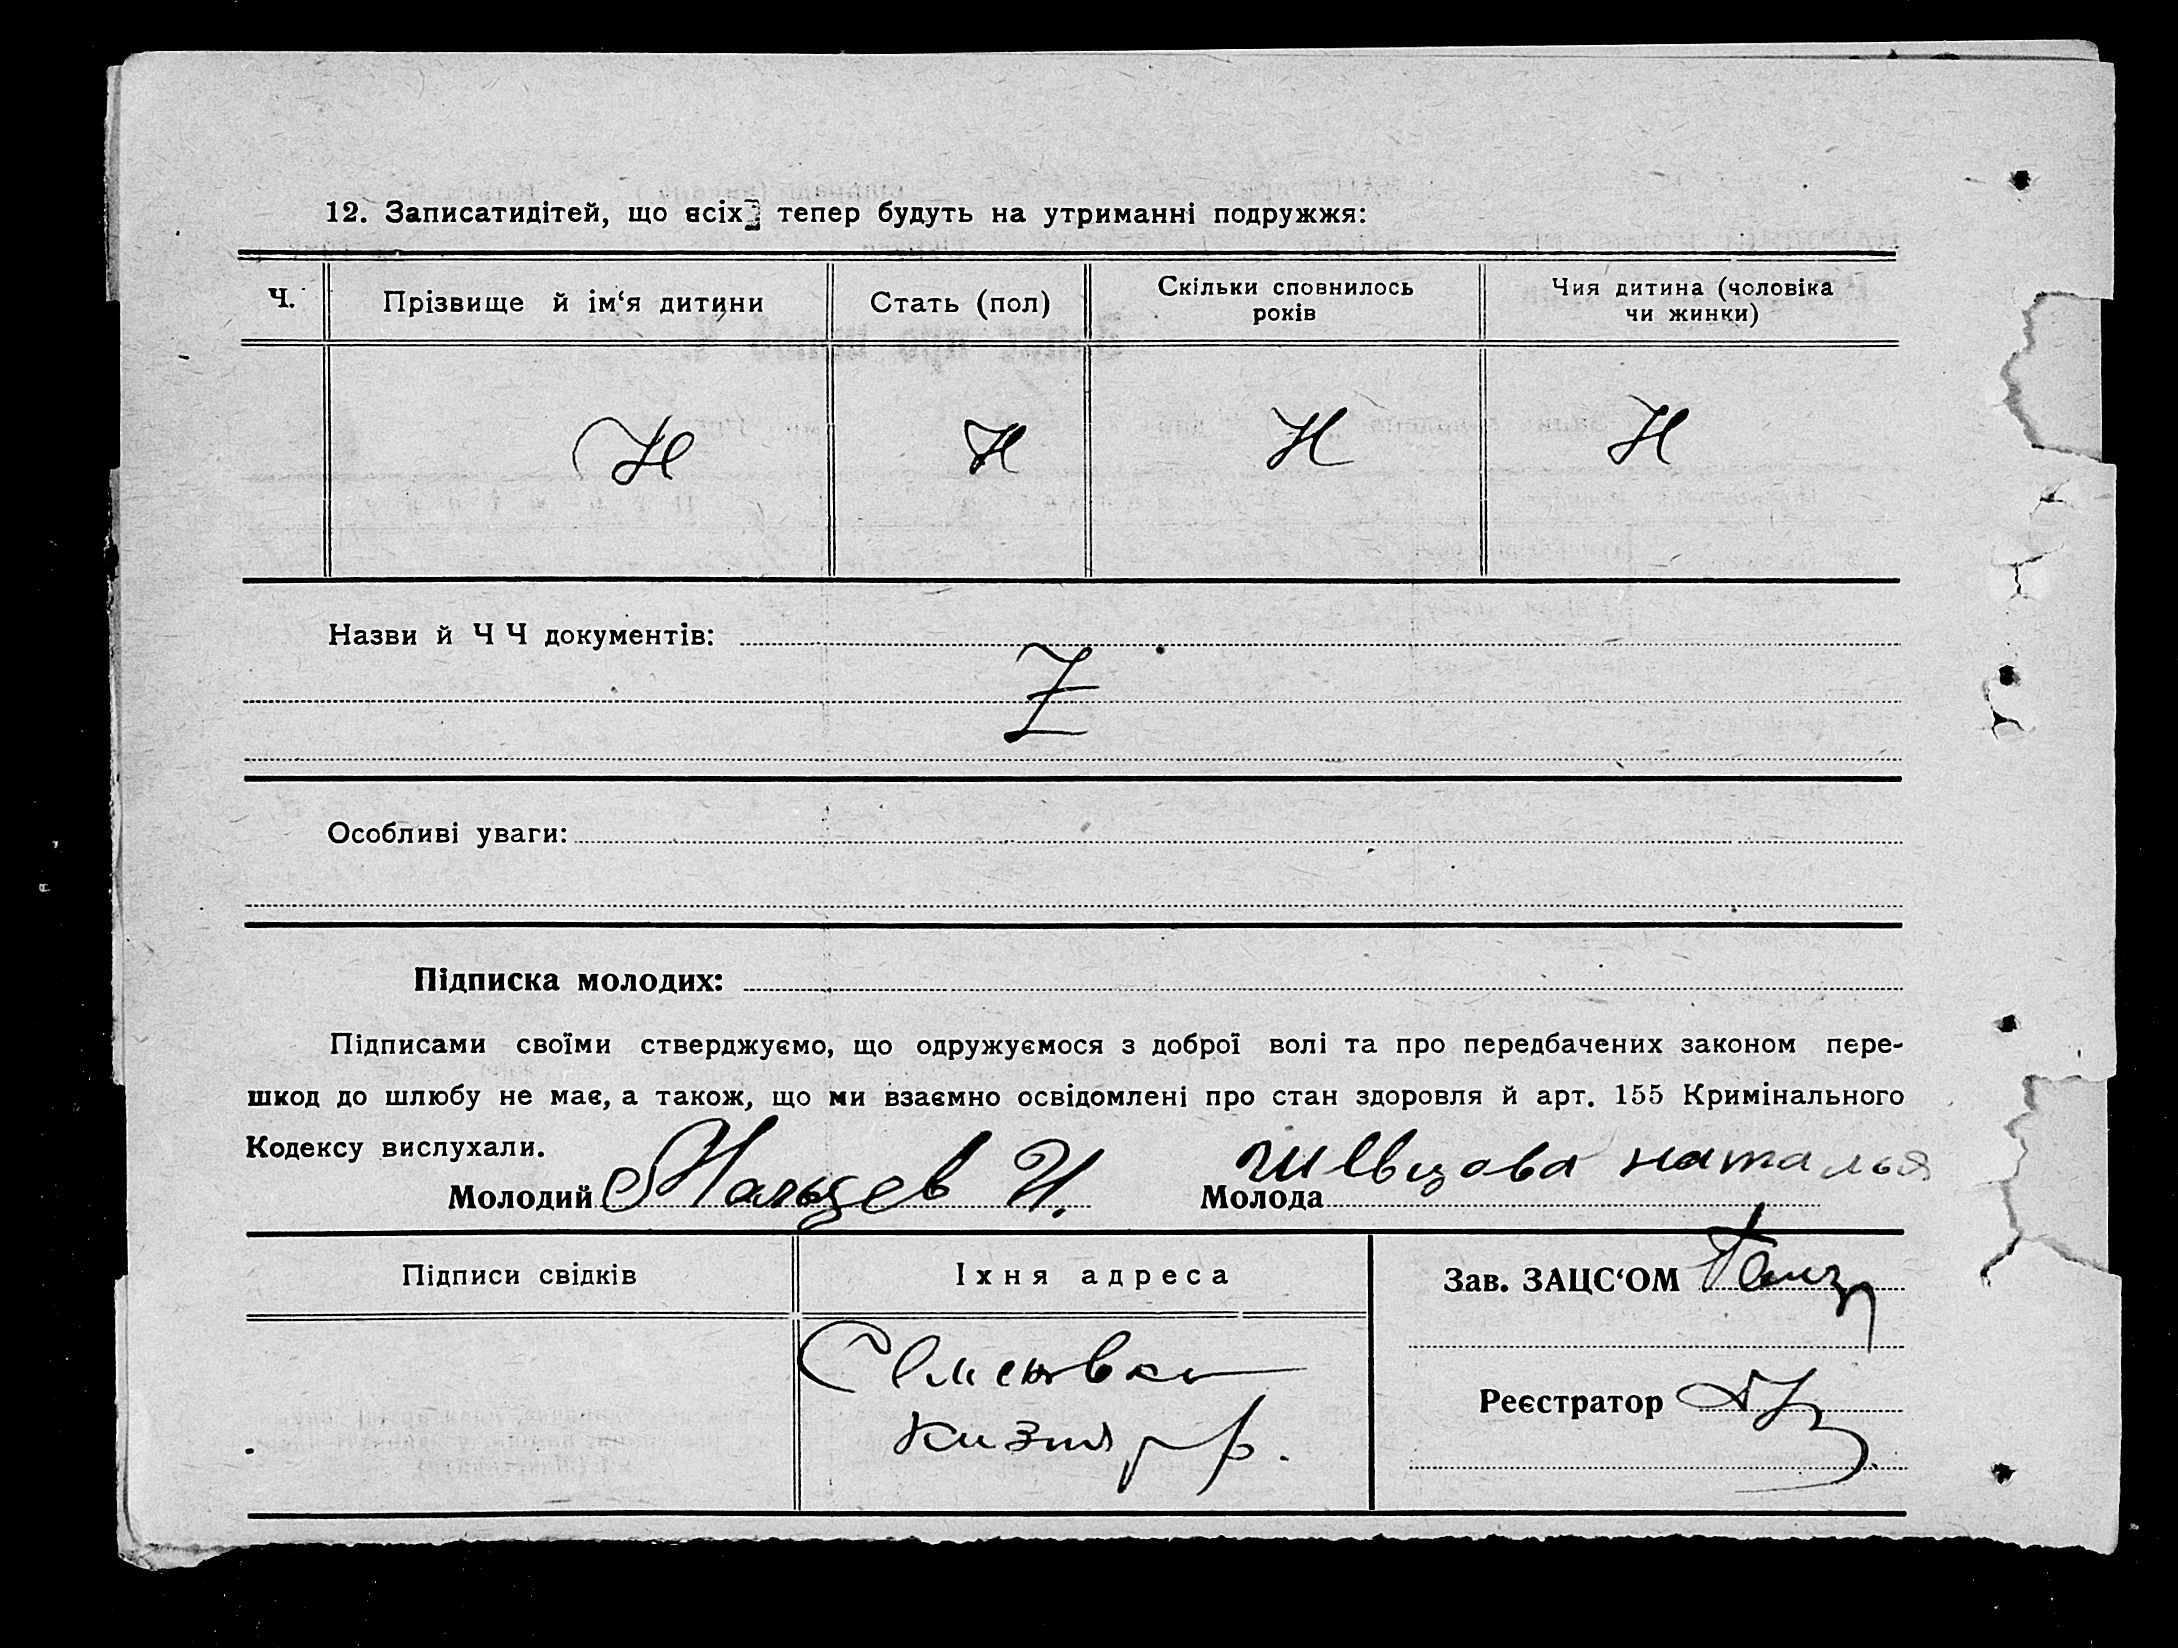 12. Записатидітей, що всіх тепер будуть на утриманні подружжя:
Ч. Прізвище й ім‘я дитини Стать (пол) Скільки сповнилось років Чия дитина (чоловіка чи жинки)
Н Н Н Н
Назви й ЧЧ документів:
Z
Особливі уваги:
Підписка молодих:
Підписами своїми стверджуємо, що одружуємося з доброї волі та про передбачених законом пере-
шкод до шлюбу не має, а також, що ми взаємно освідомлені про стан здоровля й арт. 155 Кримінального
Кодексу вислухали.
Молодий Мальцев И. Молода Шевцова наталья
Підписи свідків Їхня адреса Зав. ЗАЦС‘ОМ
Семеновка
Реєстратор